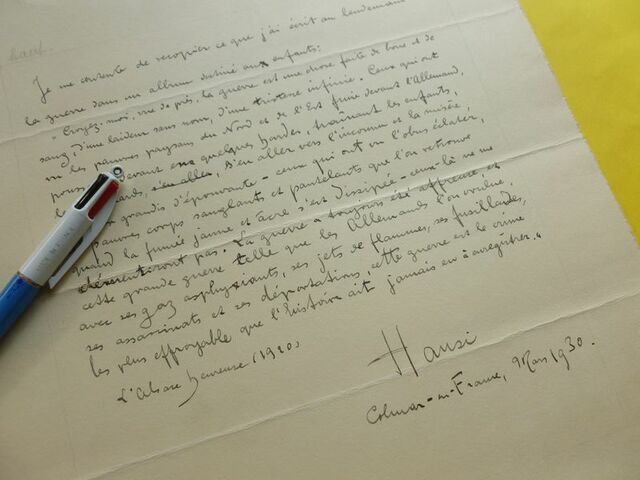 Je me contente de recopier ce que j'ai écrit au lendemain
la guerre dans un album destiné aux enfants:
"Croyez-moi, vue de près, la guerre est une chose faite de boue et de
sang, d'une laideur sans nom, d'une tristesse infinie. Ceux qui ont
vu les pauvres paysans du Nord et de l'Est fuir devant l'Allemand,
pous devant eux quelques hardes, traînant les enfants,
s'en aller vers l'inconnu et la misère,
grandis d'épouvante - ceux qui ont vu l'obus éclater,
pauvres corps sanglants et pantelants que l'on retrouve
quand la fumée jaune et âcre s'est dissipée - ceux-là ne me
démentiront pas. La guerre a toujours été affreuse, et
cette grande guerre telle que les Allemands l'on voulue,
avec ses gaz asphyxiants, ses jets de flammes, ses fusillades,
ses assassinats et ses déportations, cette guerre est le crime
les plus effroyable que l'histoire ait jamais eu à enregistrer."
L'Alsace heureuse (1920)
Hansi
Colmar-en-France, 9 Mars 1930.